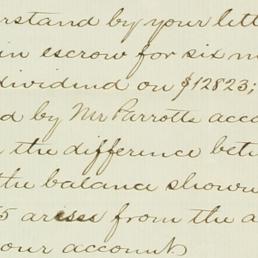 rstand by your lett
in escrow for six m
dividend on $12823;
d by Mr Parrotts acco
the difference betw
the balance shown
5 arises from the a
our account